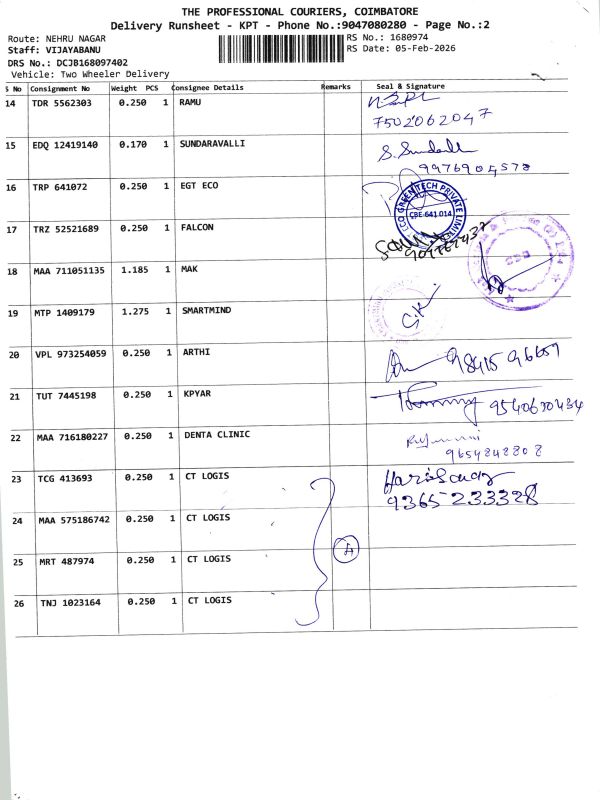 THE PROFESSIONAL COURIERS, COIMBATORE
Delivery Runsheet - KPT - Phone No.:9047080280 - Page No.:2
Route: NEHRU NAGAR RS No.: 1680974
Staff: VIJAYABANU RS Date: 05-Feb-2026
DRS No.: DCJB168097402
Vehicle: Two Wheeler Delivery
S No Consignment No Weight PCS Consignee Details Remarks Seal & Signature
14 TDR 5562303 0.250 1 RAMU
7502062047
15 EDQ 12419140 0.170 1 SUNDARAVALLI S. Sundar
9976904578
16 TRP 641072 0.250 1 EGT ECO
ECO GREENTECH PRIVATE LIMITED
CBE-641 014
17 TRZ 52521689 0.250 1 FALCON
18 MAA 711051135 1.185 1 MAK
19 MTP 1409179 1.275 1 SMARTMIND S.K
20 VPL 973254059 0.250 1 ARTHI
21 TUT 7445198 0.250 1 KPYAR 9540630434
22 MAA 716180227 0.250 1 DENTA CLINIC
9654242808
23 TCG 413693 0.250 1 CT LOGIS
9365233328
24 MAA 575186742 0.250 1 CT LOGIS
A
25 MRT 487974 0.250 1 CT LOGIS
26 TNJ 1023164 0.250 1 CT LOGIS